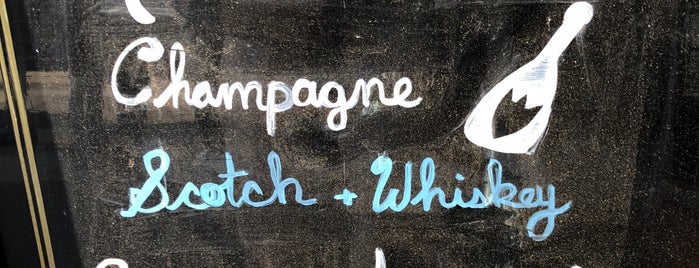 Champagne
Scotch + Whiskey